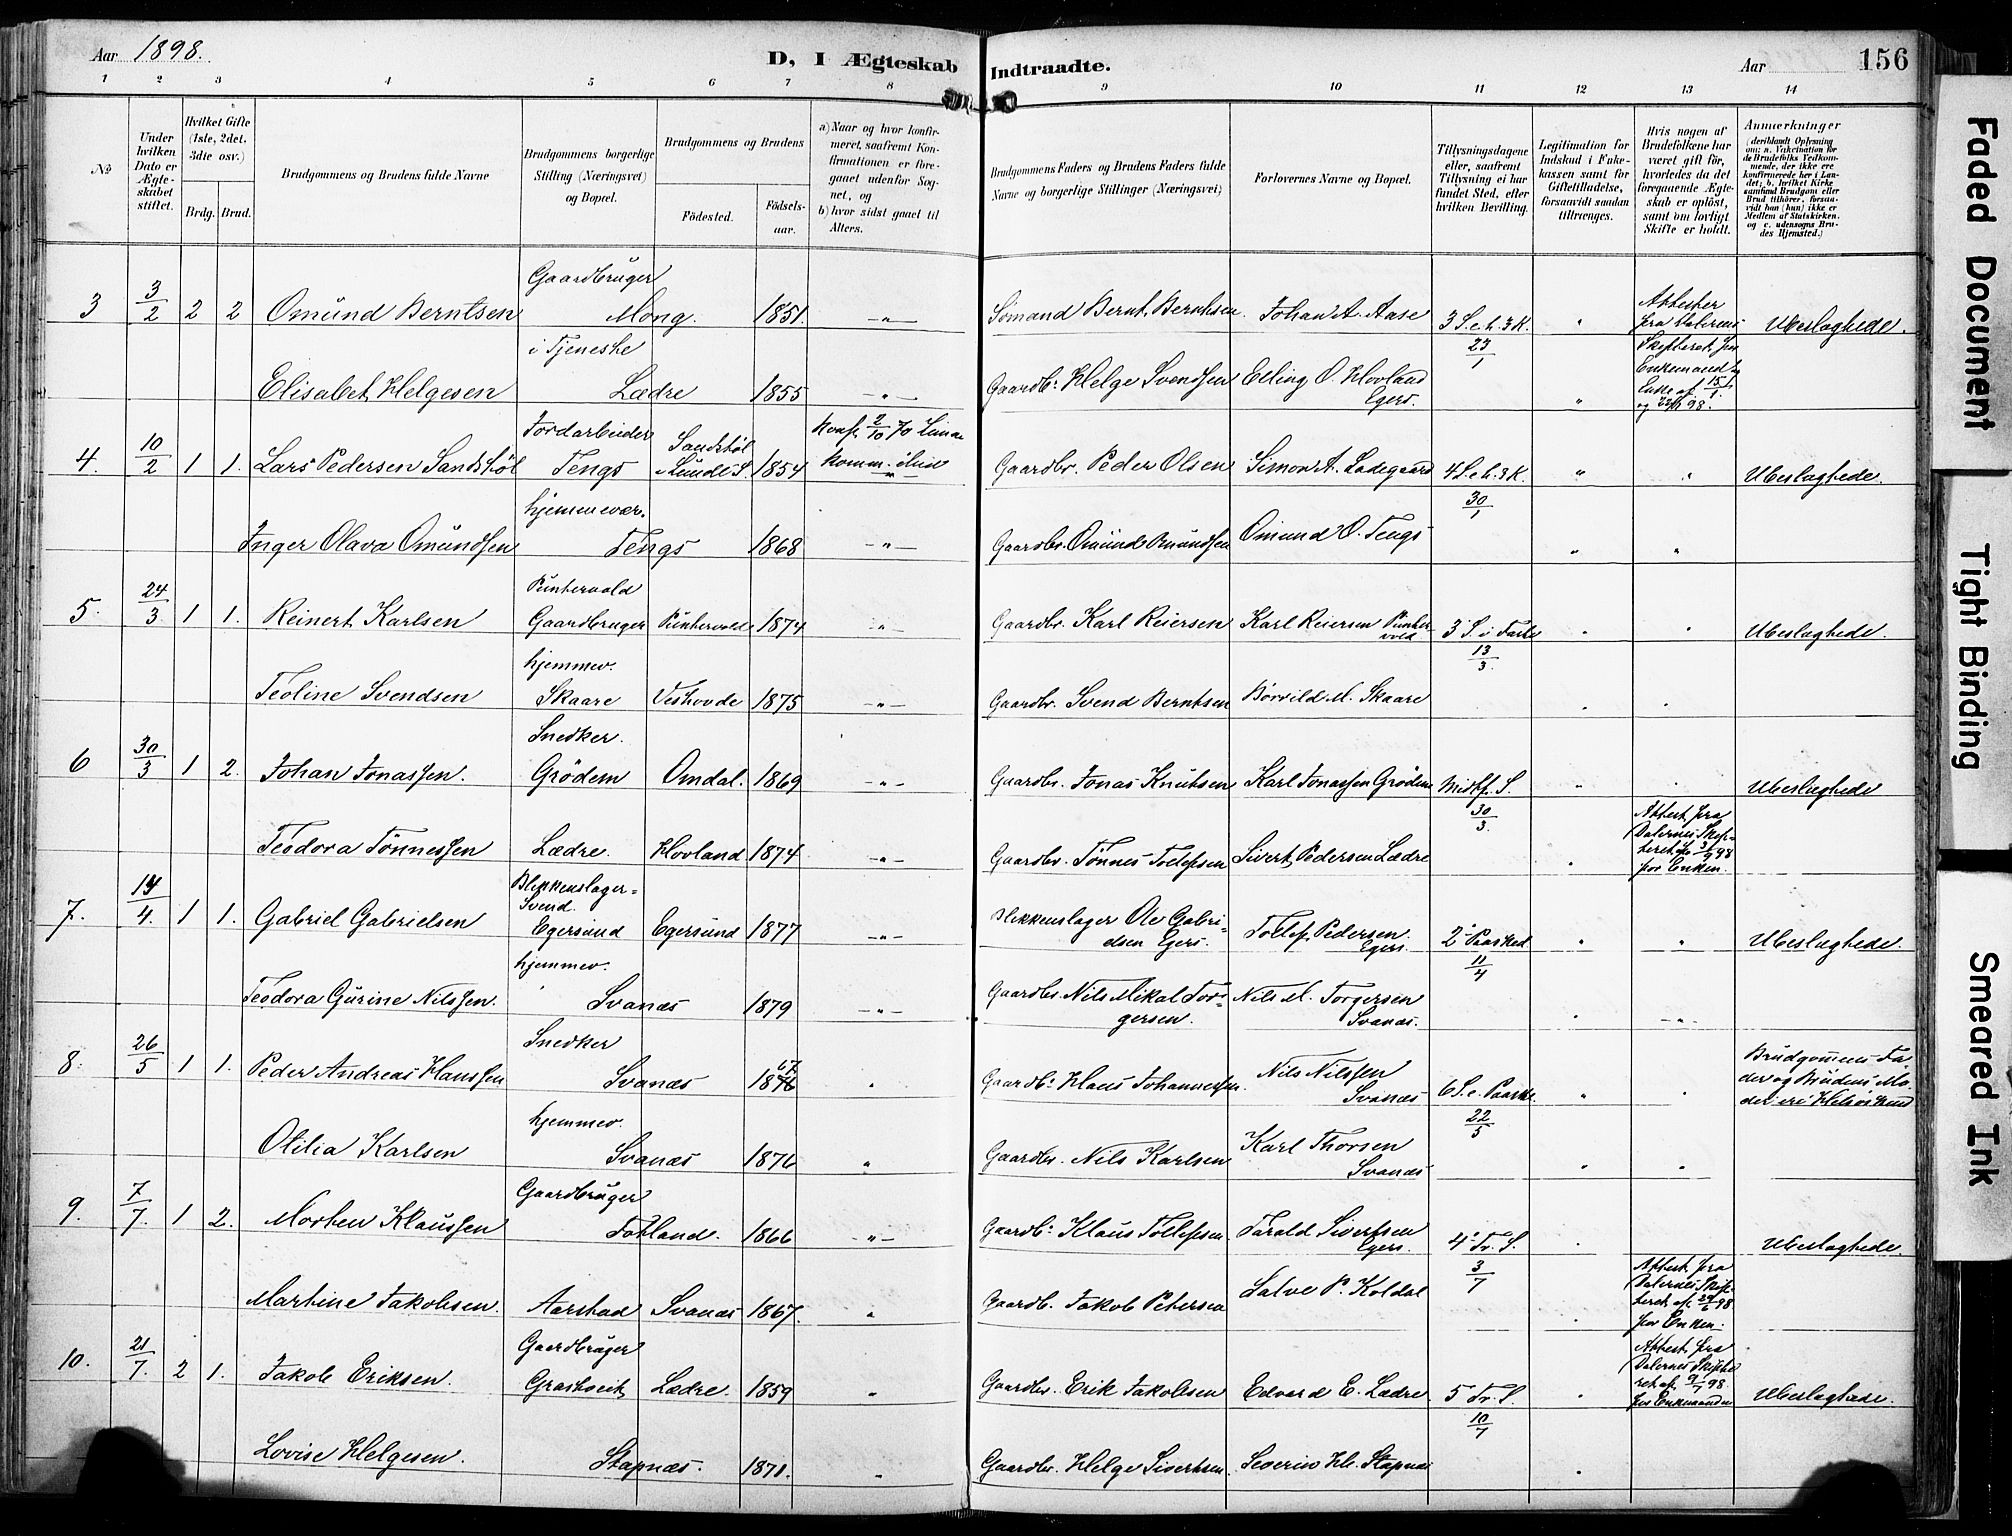 Aar 1898.
D, I Ægteskab Indtraadte.
Aar
156
1 2 3 4 5 6 7 8 9 10 11 12 13 14
No
Under hvilken Dato er Ægteskabet stiftet.
Hvilket Gifte (1ste, 2det, 3die osv.)
Brdg. Brud.
Brudgommens og Brudens fulde Navne
Brudgommens borgerlige Stilling (Næringsvei) og Bopæl.
Brudgommens og Brudens
Födested.
Födselsaar.
a) Naar og hvor konfirmeret, saafremt Konfirmationen er foregaaet udenfor Sognet, og
b) hvor sidst gaaet til Alters.
Brudgommens Faders og Brudens Faders fulde Navne og borgerlige Stillinger (Næringsvei)
Forlovernes Navne og Bopæl.
Tillysningsdagene eller, saafremt Tillysning ei har fundet Sted, efter hvilken Bevilling.
Legitimation for Indskud i Enkekassen samt for Giftetilladelse, forsaavidt saadan tiltrænges.
Hvis nogen af Brudefolkene har været gift för, hvorledes da det foregaaende Ægteskab er oplöst, samt om lovligt Skifte er holdt.
Anmærkninger
(deriblandt Oplysning om: a. Vakcination for de Brudefolks Vedkommende, der ikke ere konfirmerede her i Landet; b. hvilket Kirkesamfund Brudgom eller Brud tilhörer, forsaavidt han (hun) ikke er Medlem af Statskirken, og c. udensogns Brudes Hjemsted.)
3 3/2 2 2 Omund Berntsen Gaardbruger Mong. 1851. —„— Sömand Bernt Berntsen Johan A. Aase 3 S. e. h. 3 K. 23/1 „ Attester fra Dalernes Skifteret for Enkemand og Enke af 15/1 og 98. Ubeslægtede.
Elisabet Helgesen i Tjeneste Lædre 1855 —„— Gaardb: Helge Svendsen Elling O. Hovland Egers. „
4. 10/2 1 1. Lars Pedersen Sandstöl Jordarbeider Tengs Sandstöl i Lunde S. 1854 konf. 2/10 70 Gaardbr. Peder Olsen Simon A. Ladegaard 4 S. e. h. 3 K. 30/1 „ „ Ubeslægtede.
Inger Olava Omundsen hjemmevær. Tengs 1868 —„— Gaardbr. Omund Omundsen Omund O. Tengs „ „
5. 24/3 1 1. Reinert Karlsen Puntervold Gaardbruger Puntervold 1874 —„— Gaardbr. Karl Reiersen Karl Reiersen Puntervold 3 S. i Faste 13/3 „ „ Ubeslægtede.
Teoline Svendsen hjemmev. Skaare Veshovde 1875 —„— Gaardbr. Svend Berntsen Börrild M. Skaare „ „
6 30/3 1 2. Johan Jonassen. Snedker. Grödem Omdal. 1869 —„— Gaardbr. Jonas Knutsen Karl Jonassen Grödem Midtf. S. 30/3. „ „ Ubeslægtede
Teodora Tönnessen Lædre. Hovland 1874 —„— Gaardbr. Tönnes Tollefsen Sivert Pedersen Lædre „ Attest fra Dalernes Skifteret 98 for Enken.
7. 14/4. 1 1. Gabriel Gabrielsen Blikkenslager=Svend. Egersund Egersund 1877 —„— Blikkenslager Ole Gabrielsen Egers. Tollef Pedersen Egers. 2 Paasked. 11/4 „ „ Ubeslægtede.
Teodora Gurine Nilssen. hjemmev. Svanæs 1879 —„— Gaardbr. Nils Mikal Torgersen. Nils M. Torgersen Svanæs. „ —„—
8. 26/5 1 1. Peder Andreas Hanssen Snedker Svanæs „ Gaardb: Hans Johannessen. Nils Nilssen Svanæs 6 S. e. Paaske. 22/5 „ „ Brudgommens Fader og Brudens Moder ere Helsöskend
Otilia Karlsen hjemmev. Svanæs 1876 „ Gaardbr. Nils Karlsen Karl Thorsen Svanæs „ „
9. 7/7. 1 2. Morten Klaussen Gaardbruger Fotland. 1866 —„— Gaardb: Klaus Tollefsen. Tarald Sivertsen Egers. 4 Tr. S. 3/7 „ Ubeslægtede.
Martine Jakobsen. Aarstad Svanæs 1867. „ Gaardb. Jakob Petersen Salve P. Koldal „ Attest fra Dalernes Skifteret af 98 for Enken.
10. 21/7. 2 1. Jakob Eriksen. Gaardbruger Grastveit Lædre. 1859 „ Gaardbr. Erik Jakobsen Edvard E. Lædre 5 Tr. S. 10/7 „ Attest fra Dalernes Skifteret af 9/7 98. for Enkemanden Ubeslægtede.
Lovise Helgesen. Stapnæs. 1871. „ Gaardbr. Helge Sivertsen. Severin H. Stapnæs „
Faded Document
Tight Binding
Smeared Ink